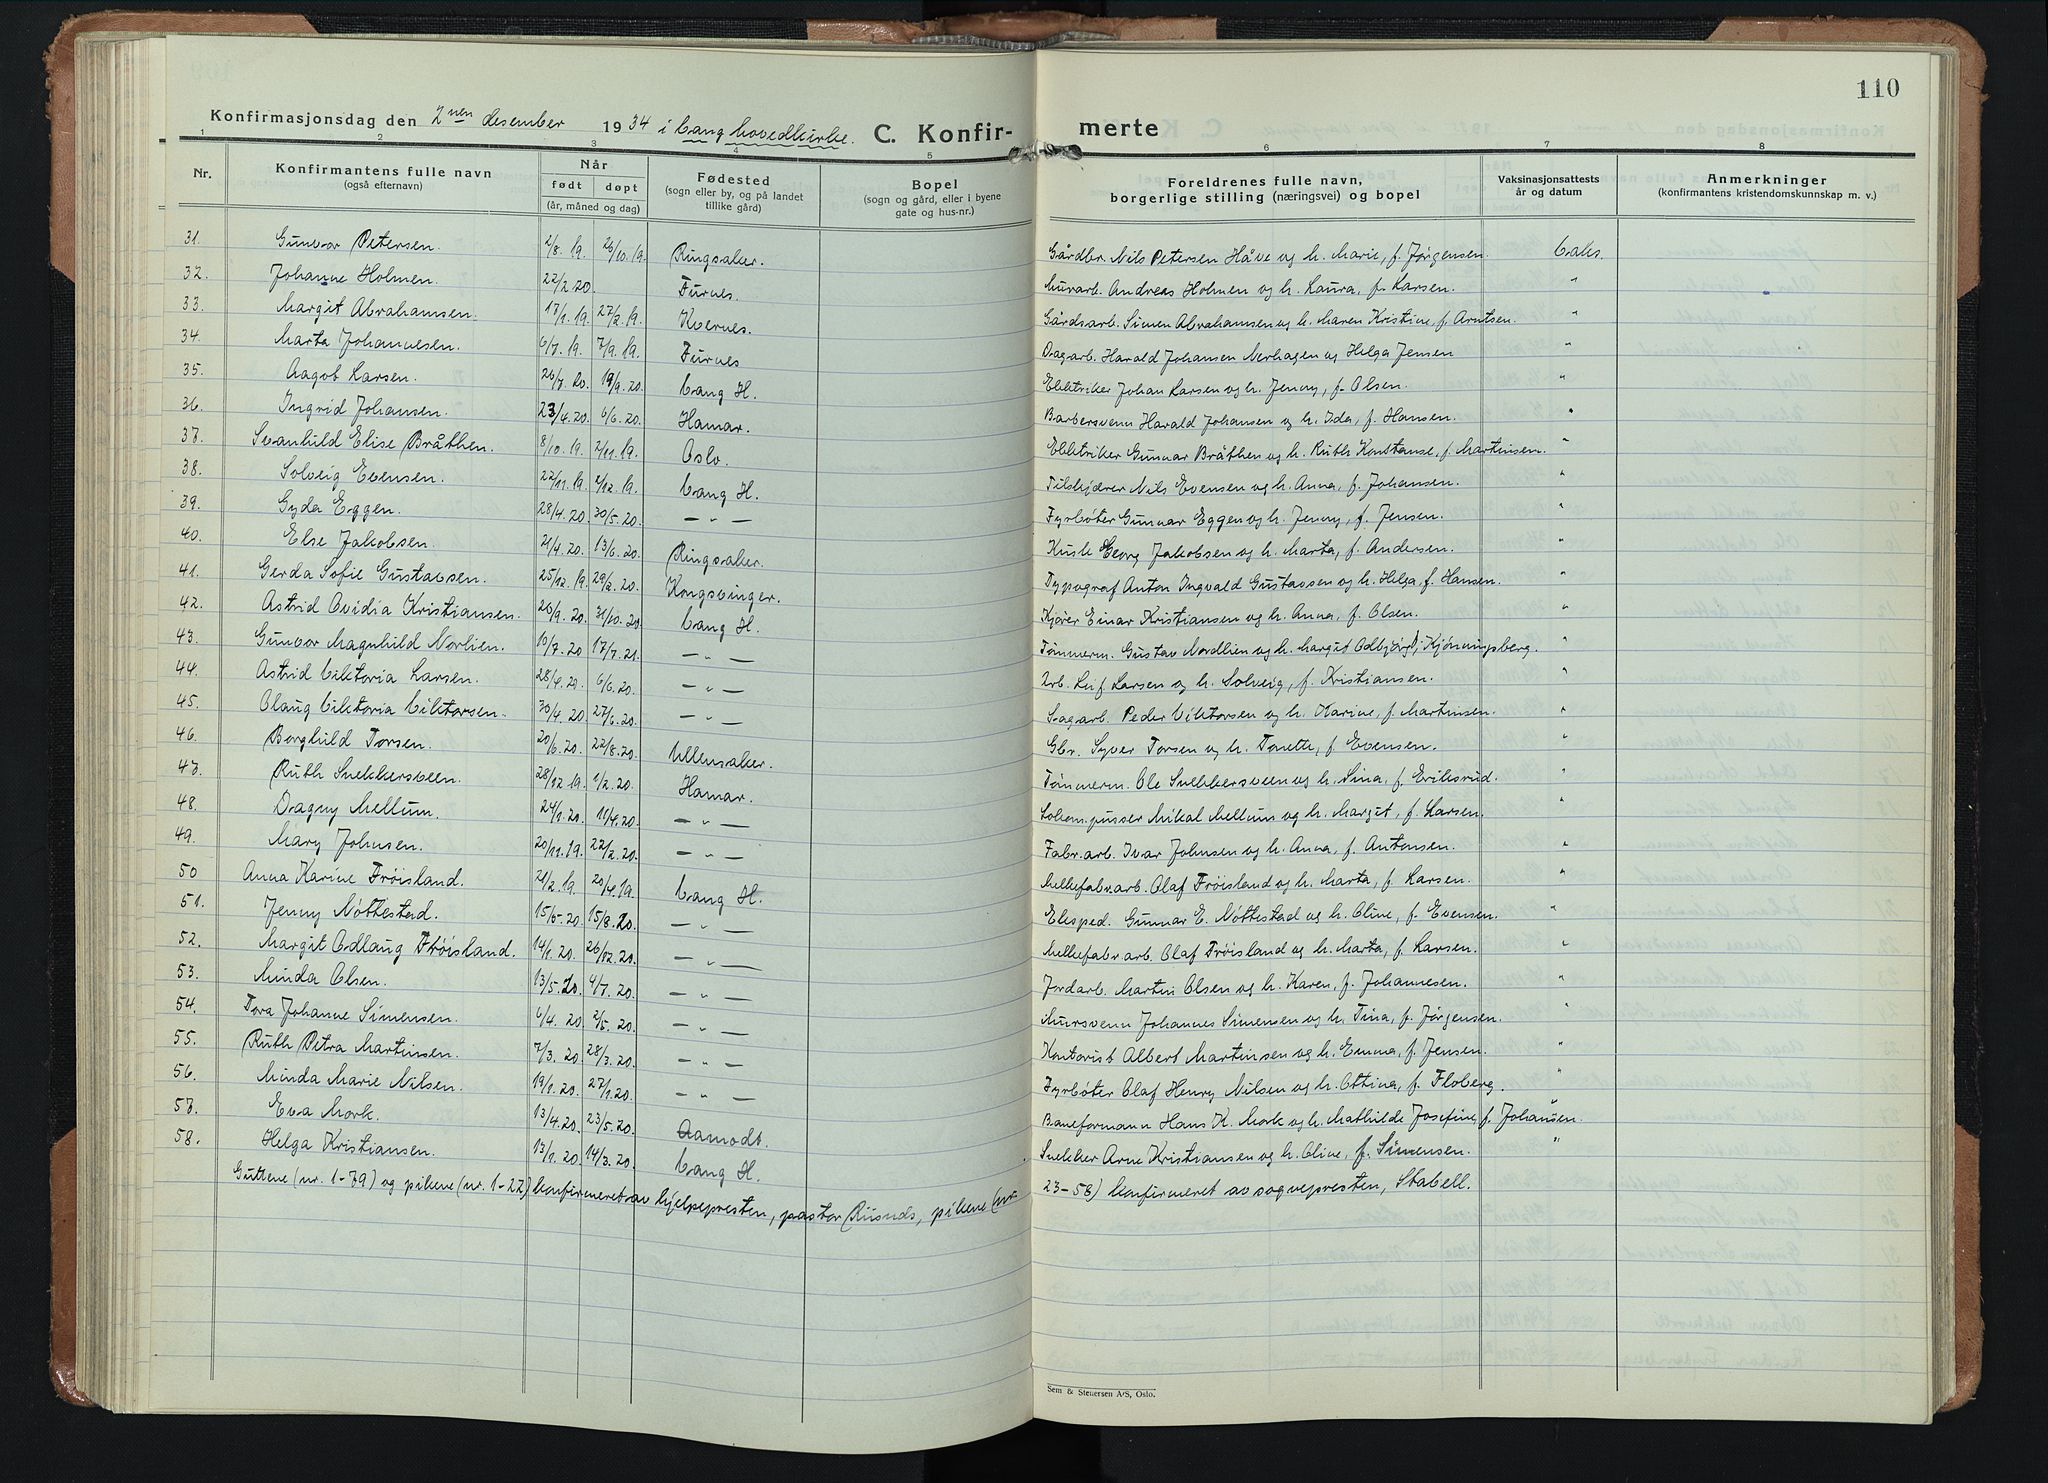 110
Konfirmasjonsdag den 2nen desember 1934 i Vang hovedkirke. C. Konfir- merte
1 2 3 4 5 6 7 8
Nr. Konfirmantens fulle navn (også efternavn) Når født døpt (år, måned og dag) Fødested (sogn eller by, og på landet tillike gård) Bopel (sogn og gård, eller i byene gate og hus-nr.) Foreldrenes fulle navn, borgerlige stilling (næringsvei) og bopel Vaksinasjonsattests år og datum Anmerkninger (konfirmantens kristendomskunnskap m. v.)
31. Gunvor Petersen. 2/8. 19. 26/10. 19. Ringsaker. Gårdbr. Nils Petersen Håve og h. Marie, f. Jørgensen.
32. Johanne Holmen. 22/2 20. Furnes. Murarb. Andreas Holmen og h. Laura, f. Larsen. "
33. Margit Abrahamsen. 17/1. 19. 27/2. 19. Kvernes. Gårdsarb. Simen Abrahamsen og h. Maren Kristine, f. Arntsen. "
34. Marta Johannesen. 6/7. 19. 7/9. 19. Furnes Dagarb. Harald Johansen Nerhagen og Helga Jensen "
35. Aagot Larsen. 26/7. 20. 19/9. 20. Vang H. Elektriker Johan Larsen og h. Jenny, f. Olsen. "
36. Ingrid Johansen. 23/4. 20. 6/6. 20. Hamar. Barbersvenn Harald Johansen og h. Ida, f. Hansen. "
37. Svanhild Elise Bråthen. 8/10. 19. 2/11. 19. Oslo. Elektriker Gunnar Bråthen og h. Ruth Konstanse, f. Martinsen. "
38. Solveig Evensen. 22/11. 19. 2/12. 19. Vang H. Tilskjærer Nils Evensen og h. Anna, f. Johansen. "
39. Gyda Eggen. 28/4. 20. 30/5. 20. — " — Fyrbøter Gunnar Eggen og h. Jenny, f. Jensen. "
40. Else Jakobsen. 21/4. 20. 13/6. 20. Ringsaker. Kusk Georg Jakobsen og h. Marta, f. Andersen. "
41. Gerda Sofie Gustavsen. 25/12. 19. 29/2. 20. Kongsvinger. Typograf Anton Ingvald Gustavsen og h. Helga, f. Hansen. "
42. Astrid Ovidia Kristiansen. 26/9. 20. 31/10. 20 Vang H. Kjører Einar Kristiansen og h. Anna, f. Olsen. "
43. Gunvor Magnhild Norlien. 10/7. 20 17/7. 21. — " — Tømmerm. Gustav Nordlien og h. Margit Odbjørg, f. Kjønningsberg. "
44. Astrid Viktoria Larsen. 28/4. 20. 6/6. 20. — " — Arb. Leif Larsen og h. Solveig, f. Kristiansen. "
45. Olaug Viktoria Viktorsen. 30/4. 20 27/6. 20. — " — Sagarb. Peder Viktorsen og h. Karine, f. Martinsen. "
46. Borghild Torsen. 20/6. 20. 22/8. 20. Ullensaker. Gbr. Syver Torsen og h. Torette, f. Evensen. "
47. Ruth Snekkersveen. 28/12 19. 1/2. 20. Hamar. Tømmerm. Ole Snekkersveen og h. Sina, f. Eriksrud. "
48. Dragny Mellum. 24/1. 20. 11/4. 20. — " — Lokom.pusser Mikal Mellum og h. Margit, f. Larsen. "
49. Mary Johnsen. 20/11. 19. 22/2. 20. — " — Fabr.arb. Ivar Johnsen og h. Anna, f. Antonsen. "
50 Anna Karine Frøisland. 21/2. 19. 20/4. 19. Vang H. Melkefabr.arb. Olaf Frøisland og h. Marta, f. Larsen. "
51. Jenny Nøttestad. 15/5. 20 15/8. 20. — " — Eksped. Gunnar E. Nøttestad og h. Olive, f. Evensen. "
52. Margit Odlaug Frøisland. 14/1. 20. 26/12. 20. — " — Melkefabr.arb. Olaf Frøisland og h. Marta, f. Larsen. "
53. Minda Olsen. 13/5. 20. 4/7. 20. — " — Jordarb. Martin Olsen og h. Karen, f. Johannesen. "
54. Tora Johanne Simensen. 6/4. 20. 2/5. 20. — " — Mursvenn Johannes Simensen og h. Tina, f. Jørgensen. "
55. Ruth Petra Martinsen. 7/3. 20. 28/3. 20. — " — Kontorist Albert Martinsen og h. Emma, f. Jensen. "
56. Minda Marie Nilsen. 19/1. 20. 27/1. 20. — " — Fyrbøter Olaf Henry Nilsen og h. Ottina, f. Floberg. "
57. Eva Mork. 13/4. 20. 23/5. 20. Aamodt. Baneformann Hans K. Mork og h. Mathilde Josefine, f. Johansen. "
58. Helga Kristiansen. 13/1. 20. 14/3. 20. Vang H. Snekker Arne Kristiansen og h. Olive, f. Simensen. "
Guttene (nr. 1-79) og pikene (nr. 1-22) konfirmeret av hjelpepresten, pastor, pikene (nr. 23-58) konfirmeret av sognepresten, Stabell.
Sem & Stenersen A/S, Oslo.